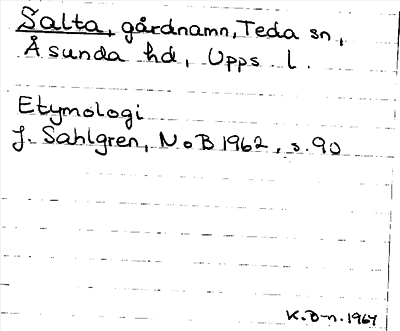 Salta, gårdnamn, Teda sn,
Åsunda hd, Upps. l.
Etymologi
J. Sahlgren, NoB 1962, s. 90
K.D-n. 1964